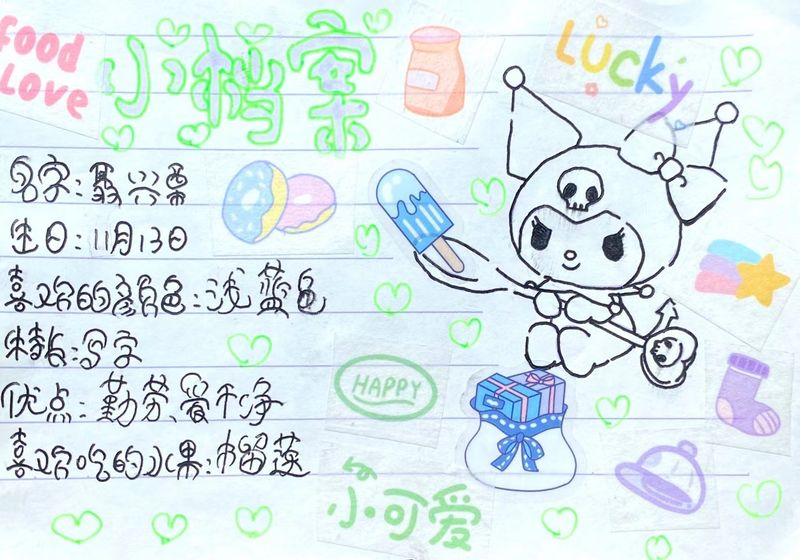 Food
Love
小档案
Lucky
名字:聂兴栗
生日:11月13日
喜欢的颜色:浅蓝色
特长:写字
优点:勤劳、爱干净
喜欢吃的水果:榴莲
HAPPY
小可爱